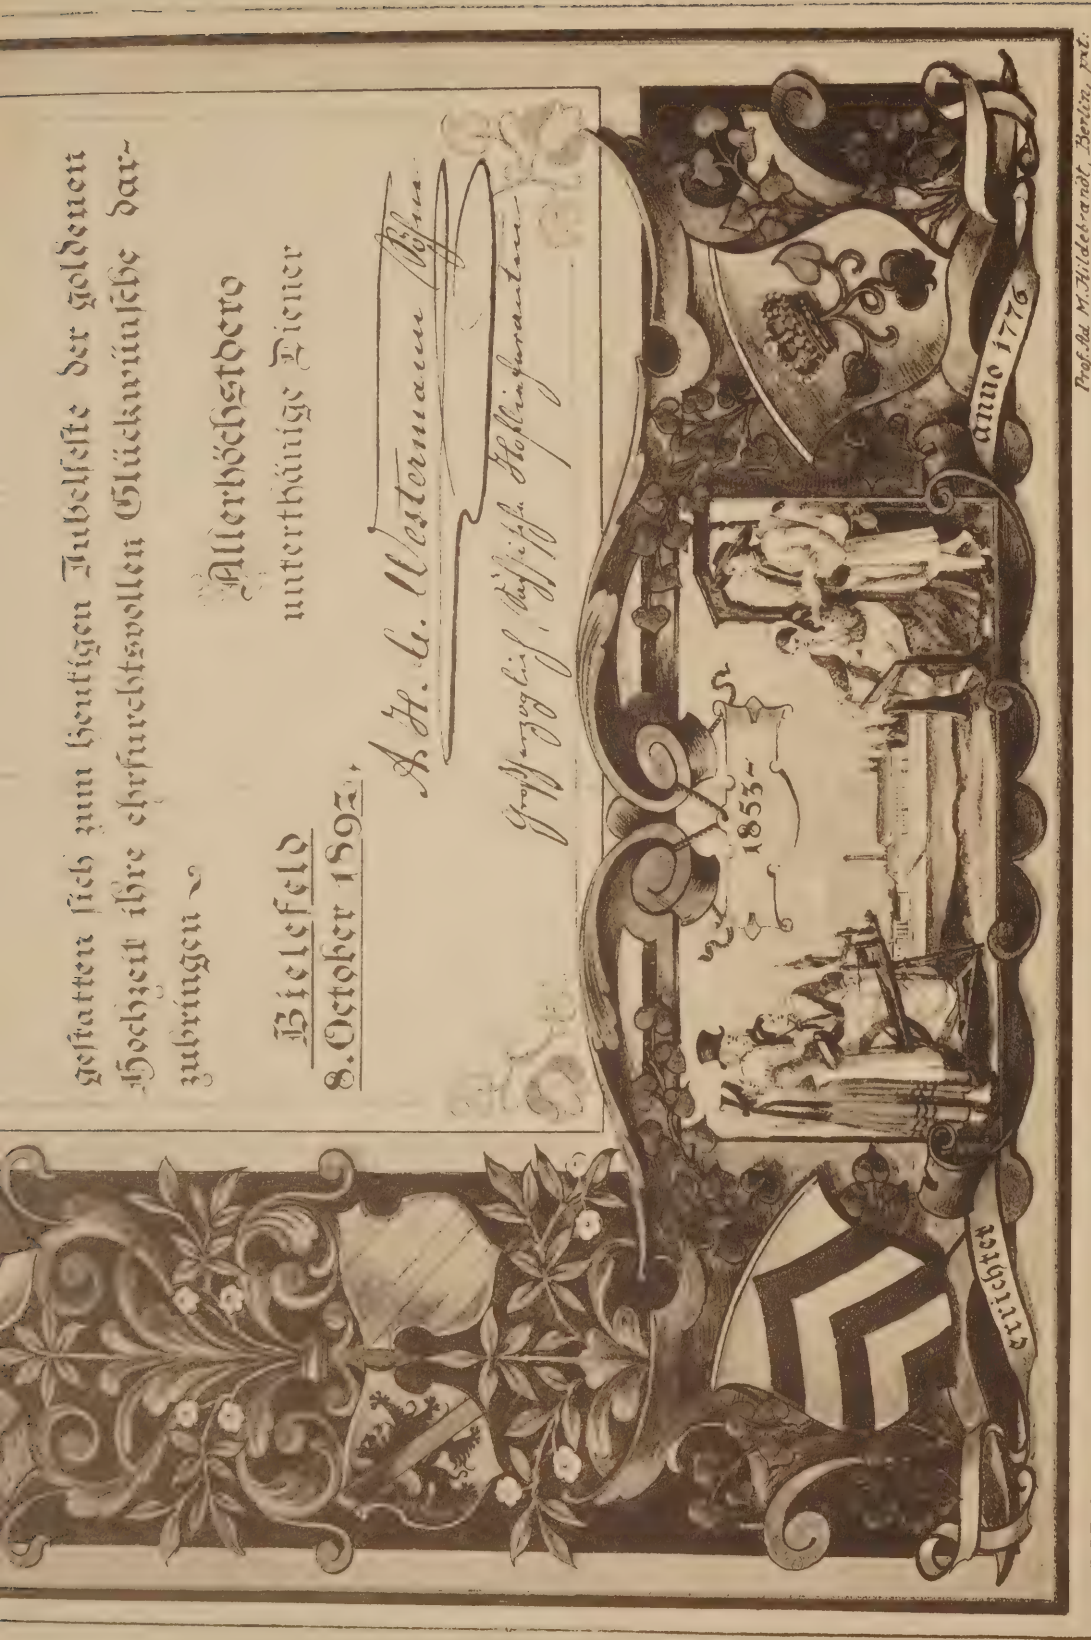 gestatten sich zum heutigen Jubelfeste der goldenen
Hochzeit ihre ehrfurchtsvollen Glückwünsche dar-
zubringen
Allerhöchstdero
unterthänige Diener
Bielefeld
8. October 1892.
A. H. C. Westermann Söhne
Großherzoglich Sächsische Hoflieferanten
1853
errichtet
anno 1776
Prof. Ad. M. Hildebrandt, Berlin, pxt: